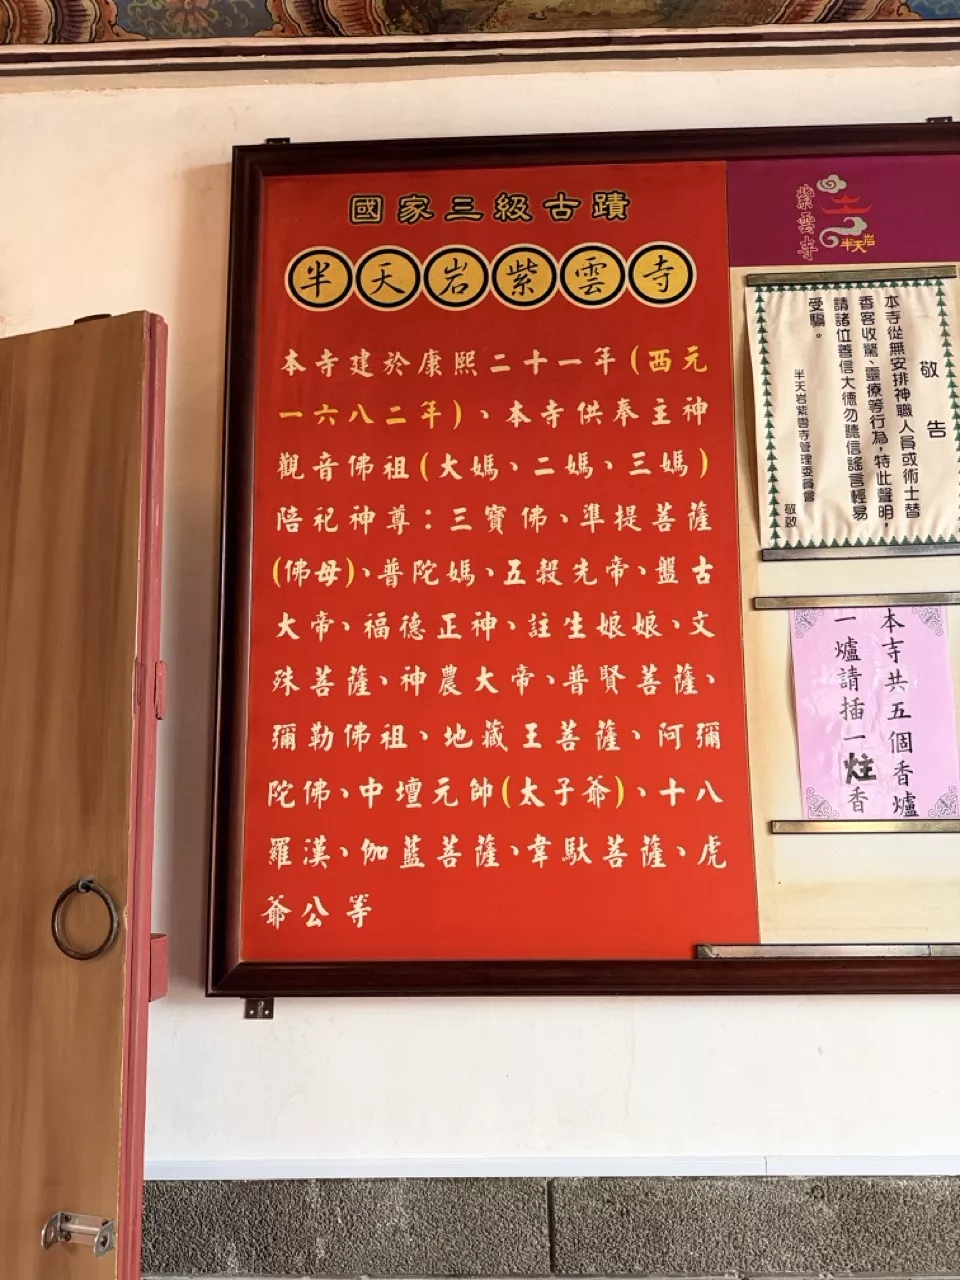 國家三級古蹟
半天岩紫雲寺
本寺建於康熙二十一年(西元
一六八二年)、本寺供奉主神
觀音佛祖(大媽、二媽、三媽)
陪祀神尊：三寶佛、準提菩薩
(佛母)、普陀媽、五穀先帝、盤古
大帝、福德正神、註生娘娘、文
殊菩薩、神農大帝、普賢菩薩、
彌勒佛祖、地藏王菩薩、阿彌
陀佛、中壇元帥(太子爺)、十八
羅漢、伽藍菩薩、韋馱菩薩、虎
爺公等
紫雲寺
半天岩
敬告
本寺從無安排神職人員或術士替
香客收驚、靈療等行為，特此聲明，
請諸位善信大德勿聽信謠言輕易
受騙。
半天岩紫雲寺管理委員會
敬啟
本寺共五個香爐
一爐請插一炷香